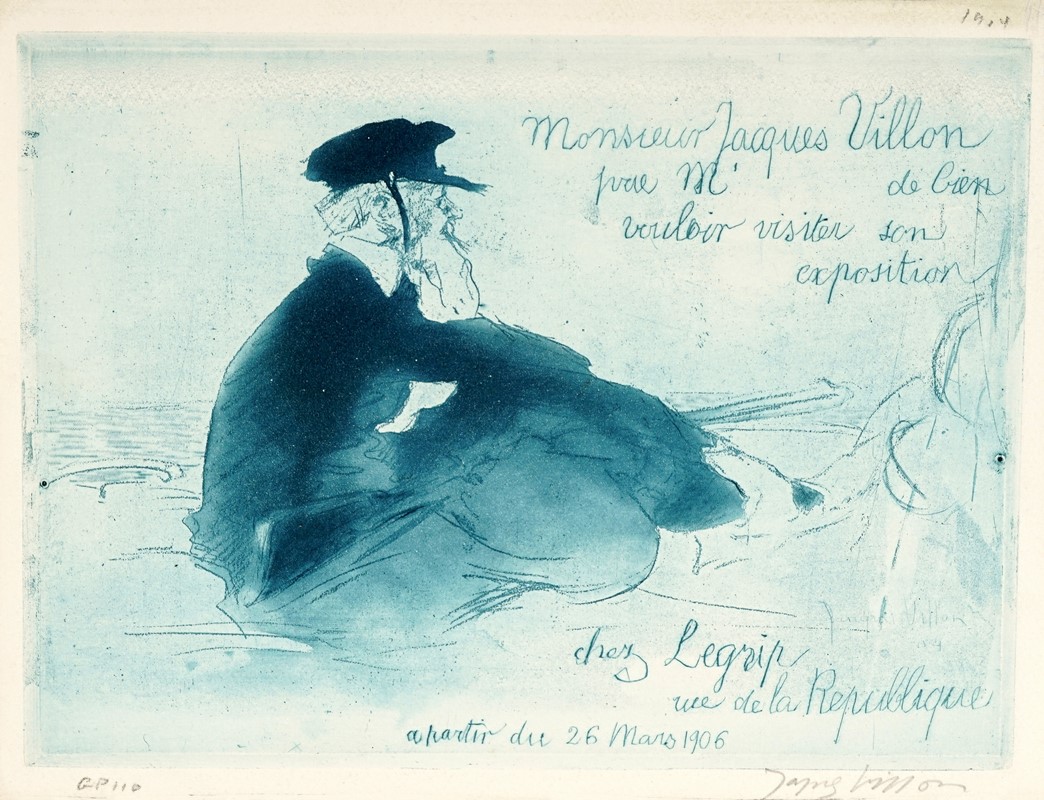 Monsieur Jacques Villon
prie Mʳ de bien
vouloir visiter son
exposition
Jacques Villon
chez Legrip
rue de la Republique
a partir du 26 Mars 1906
Jacques Villon